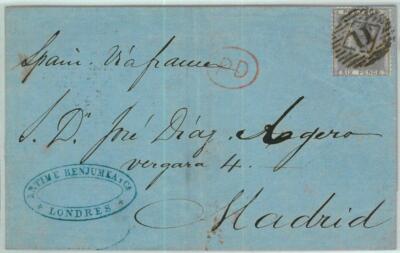 SIX PENCE
11
Spain. Via france
PD
S. Dn José Diaz Agero
vergara 4.
BENJUMEA Y Ca
LONDRES
Madrid